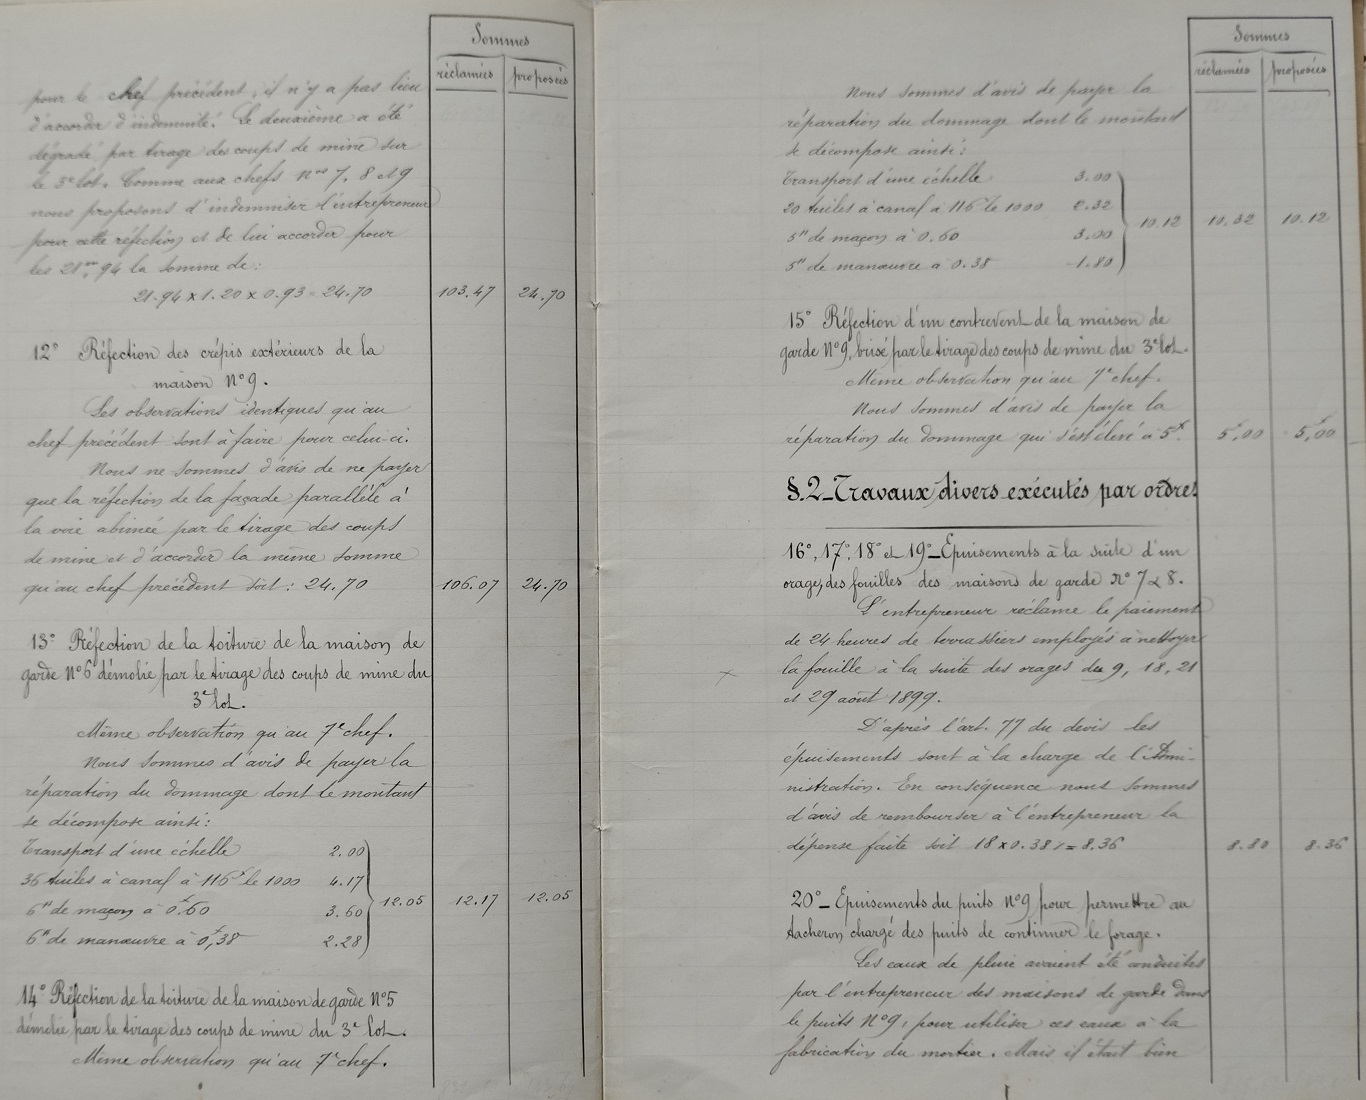 Sommes
réclamées proposées
pour le chef précédent, il n'y a pas lieu
d'accorder d'indemnité. Le deuxième a été
dégradé par tirage des coups de mine sur
le 3e lot. Comme aux chefs Nos 7, 8 et 9
nous proposons d'indemniser l'entrepreneur
pour cette réfection et de lui accorder pour
les 21m.94 la somme de:
21.94 x 1.20 x 0.93 = 24.70 103.47 24.70
12° Réfection des crépis extérieurs de la
maison N°9.
Les observations identiques qu'au
chef précédent sont à faire pour celui-ci.
Nous ne sommes d'avis de ne payer
que la réfection de la façade parallèle à
la voie abimée par le tirage des coups
de mine et d'accorder la même somme
qu'au chef précédent soit: 24.70 106.07 24.70
13° Réfection de la toiture de la maison de
garde N°6 démolie par le tirage des coups de mine du
3e lot.
Même observation qu'au 7e chef.
Nous sommes d'avis de payer la
réparation du dommage dont le montant
se décompose ainsi:
Transport d'une échelle 2.00
36 tuiles à canal à 116f le 1000 4.17
6h de maçon à 0f.60 3.60 12.05 12.17 12.05
6h de manœuvre à 0f,38 2.28
14° Réfection de la toiture de la maison de garde N°5
démolie par le tirage des coups de mine du 3e lot.
Même observation qu'au 7e chef.
Sommes
réclamées proposées
Nous sommes d'avis de payer la
réparation du dommage dont le montant
se décompose ainsi:
Transport d'une échelle 3.00
20 tuiles à canal à 116f le 1000 2.32
5h de maçon à 0.60 3.00 10.12 10.32 10.12
5h de manœuvre à 0.38 1.80
15° Réfection d'un contrevent de la maison de
garde N°9, brisé par le tirage des coups de mine du 3e lot.
Même observation qu'au 7e chef.
Nous sommes d'avis de payer la
réparation du dommage qui s'est élevé à 5f. 5f,00 5f,00
§.2_Travaux divers exécutés par ordres
16°, 17°, 18° et 19°_Epuisements à la suite d'un
orage, des fouilles des maisons de garde N° 7 & 8.
L'entrepreneur réclame le paiement
de 24 heures de terrassiers employés à nettoyer
la fouille à la suite des orages du 9, 18, 21
et 29 août 1899.
D'après l'art. 77 du devis les
épuisements sont à la charge de l'Admi-
nistration. En conséquence nous sommes
d'avis de rembourser à l'entrepreneur la
dépense faite soit 18 x 0.38 = 8.36 8.80 8.36
20°_ Epuisements du puits N°9 pour permettre au
tacheron chargé des puits de continuer le forage.
Les eaux de pluie avaient été conduites
par l'entrepreneur des maisons de garde dans
le puits N°9, pour utiliser ces eaux à la
fabrication du mortier. Mais il était bien